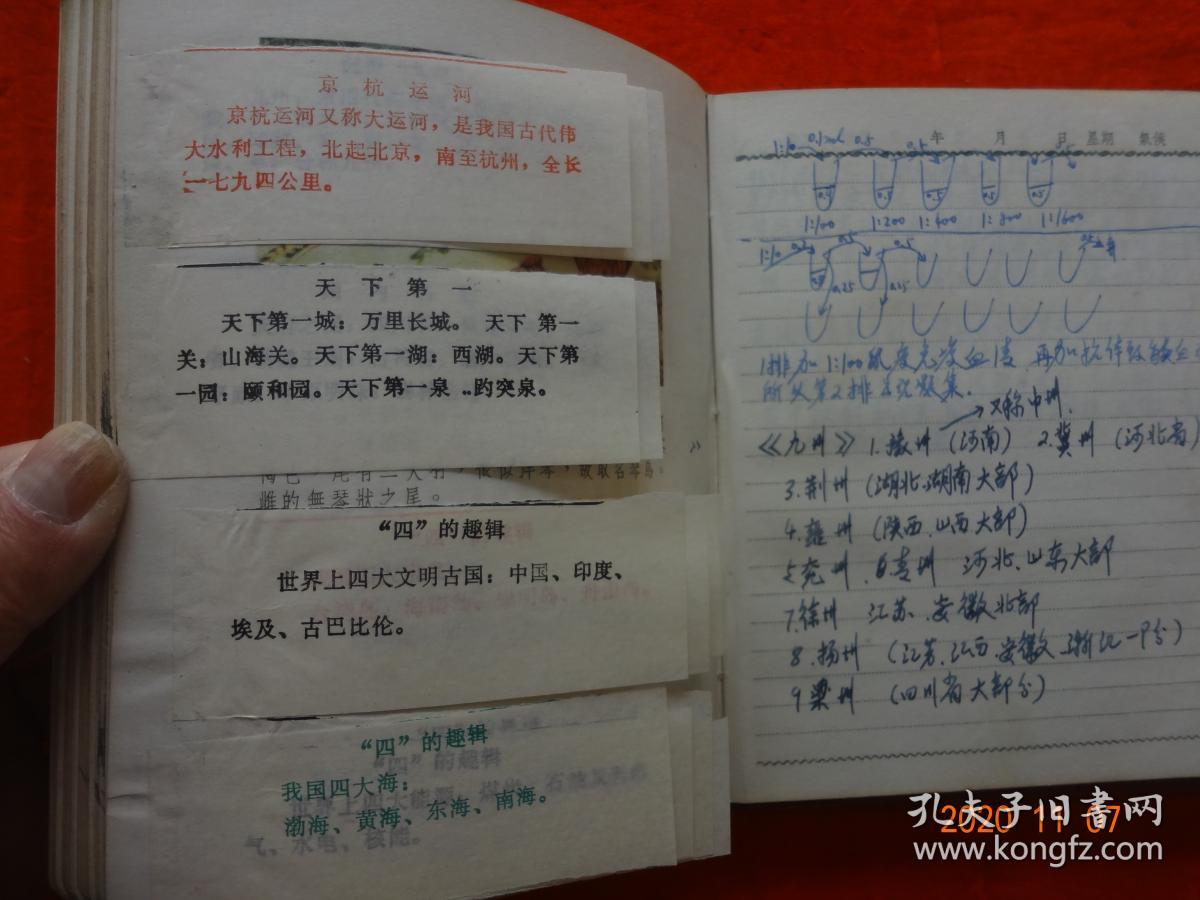 京杭运河
京杭运河又称大运河，是我国古代伟
大水利工程，北起北京，南至杭州，全长
一七九四公里。
天下第一
天下第一城：万里长城。天下 第一
关：山海关。天下第一湖：西湖。天下第
一园：颐和园。天下第一泉：趵突泉。
雌的無琴狀之尾。
“四”的趣辑
世界上四大文明古国：中国、印度、
埃及、古巴比伦。
“四”的趣辑
我国四大海：
渤海、黄海、东海、南海。
“四”的趣辑
气、水电、核能。
年 月 日 星期 氣候
1:10 0.1ml 0.5 0.5
0.5 0.5 0.5 0.5
1:100 1:200 1:400 1:800 1:1600
1:10 0.5 0.5
0.25 0.25
又称中州.
《九州》 1.豫州 (河南) 2.冀州 (河北省)
3.荆州 (湖北.湖南大部)
4.雍州 (陕西.山西大部)
5.兖州.6青州 河北、山东大部
7.徐州 江苏、安徽北部
8.扬州 (江苏.江西.安徽.浙江一部分)
9梁州 (四川省大部分)
2020 11 07
孔夫子旧書网
www.kongfz.com